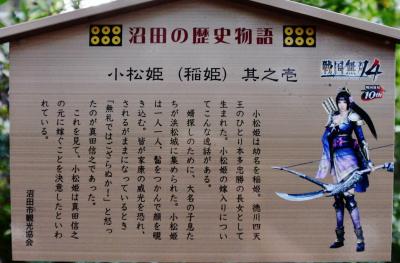 沼田の歴史物語
小松姫（稲姫）其之壱
戦国無双4
戦国無双
10th
小松姫は幼名を稲姫。徳川四天
王のひとり本多忠勝の長女として
生まれた。小松姫の嫁入りについ
てこんな逸話がある。
婿探しのために、大名の子息た
ちが浜松城に集められた。小松姫
は一人一人、髷をつかんで顔を覗
き込む。皆が家康の威光を恐れ、
されるがままになっているとき
「無礼ではござらぬか！」と怒っ
たのが真田信之であった。
これを見て、小松姫は真田信之
の元に嫁ぐことを決意したといわ
れている。
沼田市観光協会